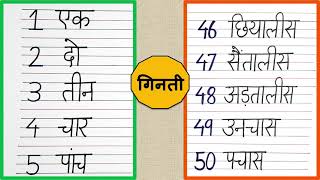 1 एक
2 दो
3 तीन
4 चार
5 पांच
गिनती
46 छियालीस
47 सैंतालीस
48 अड़तालीस
49 उनचास
50 पचास